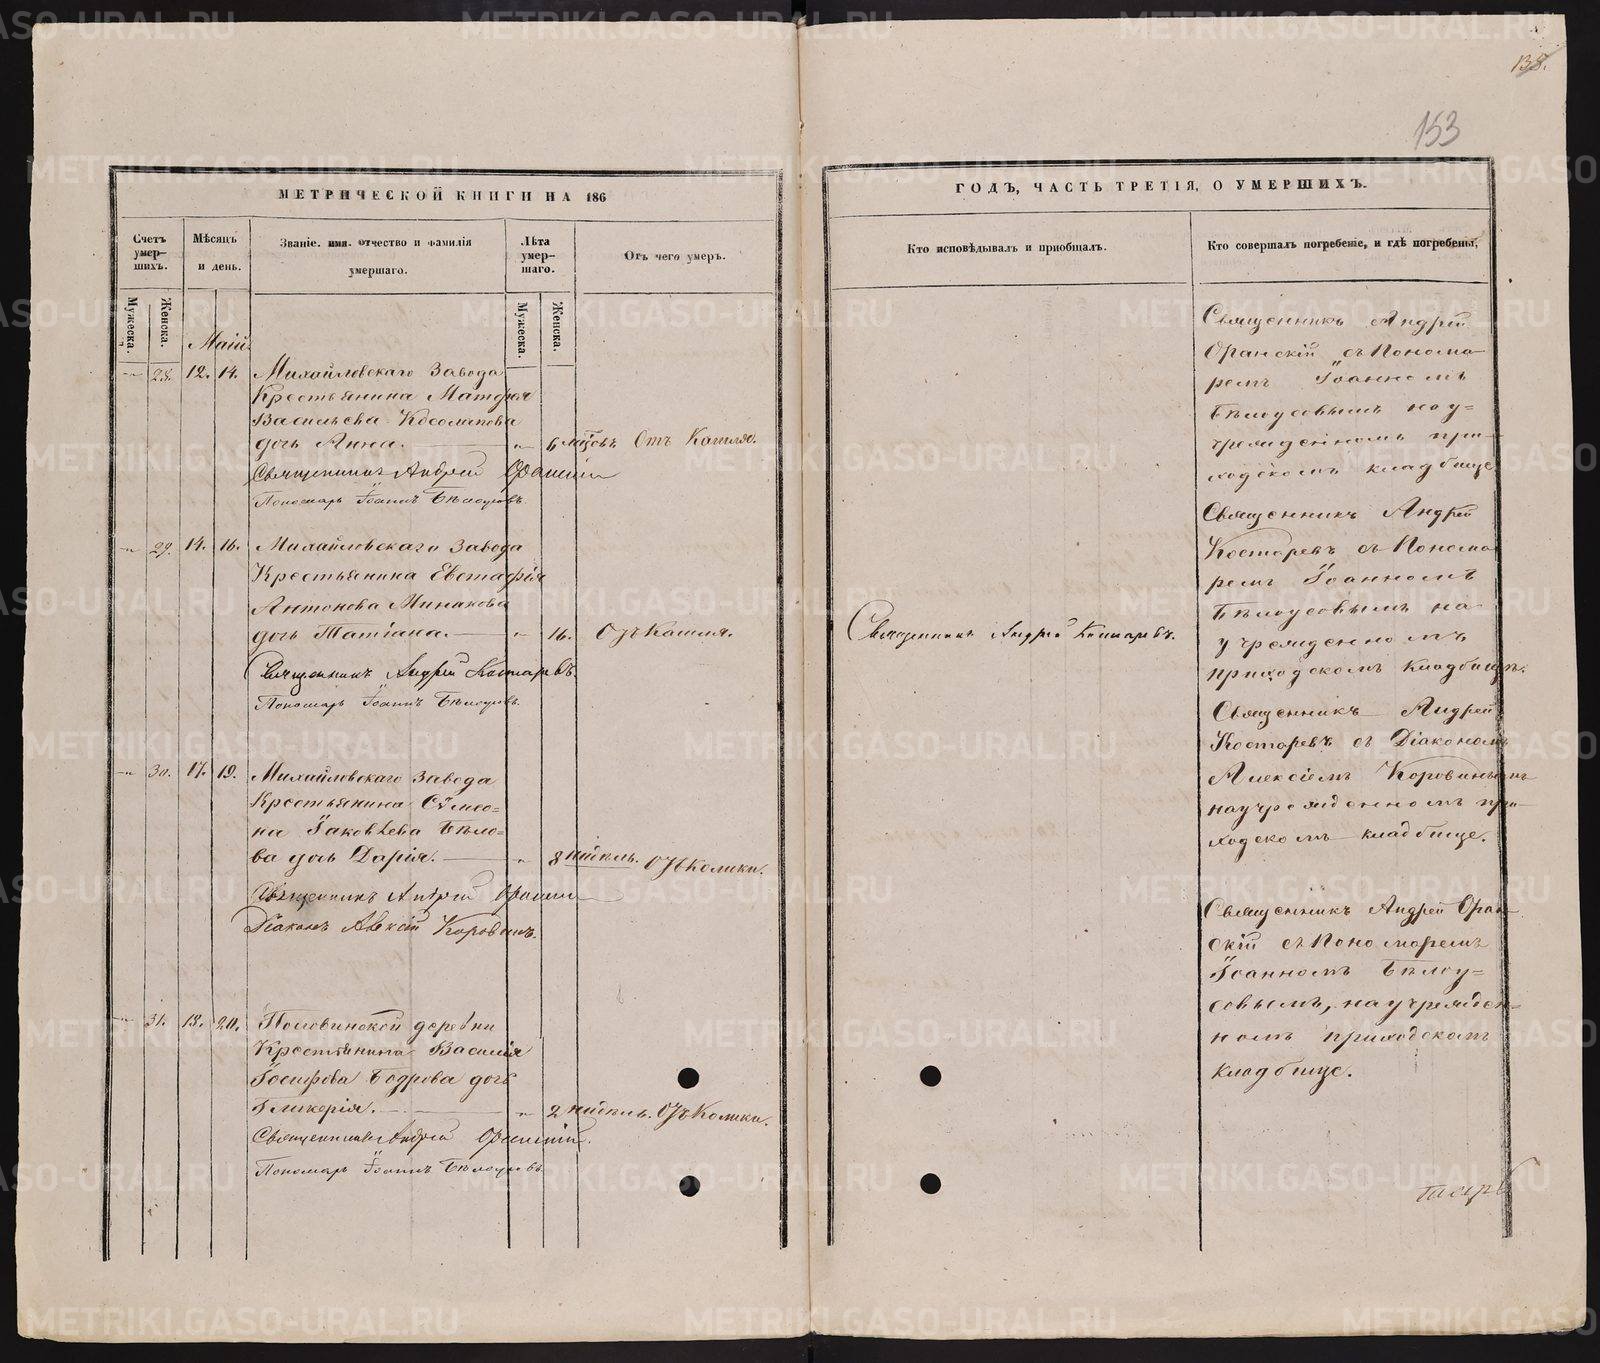 138.
153
МЕТРИЧЕСКОЙ КНИГИ НА 186
ГОДЪ, ЧАСТЬ ТРЕТІЯ, О УМЕРШИХЪ.
Счетъ умер-шихъ.
Мѣсяцъ и день.
Званіе. имя. отчество и фамилія
умершаго.
Лѣта умер-шаго.
Отъ чего умеръ.
Мужеска.
Женска.
Мужеска.
Женска.
Кто исповѣдывалъ и пріобщалъ.
Кто совершалъ погребеніе, и гдѣ погребены,
Маій
28. 12. 14. Михайловскаго Завода
Крестьянина Матфея
Васильева
дочь Анна. — „ 6 мцовъ Отъ Кашля.
Священникъ Андрей Оранскій
Пономарь Іоаннъ Бѣлоусовъ.
Священникъ Андрей
Оранскій съ Понома-
ремъ Іоанномъ
Бѣлоусовымъ на у-
чрежденномъ при-
ходскомъ кладбище
29. 14. 16. Михайловскаго Завода
Крестьянина Евстафія
Антонова Минакова
дочь Татіана. — „ 16. Отъ Кашля.
Священникъ Андрей Костаревъ.
Пономарь Іоаннъ Бѣлоусовъ.
Священникъ Андрей Костаревъ.
Священникъ Андрей
Костаревъ съ Понома-
ремъ Іоанномъ
Бѣлоусовымъ на
учрежденномъ
приходскомъ кладбищѣ.
30. 17. 19. Михайловскаго Завода
Крестьянина Сѵмео-
на Іаковлева Бѣло-
ва дочь Дарія. — „ 8 недѣль. Отъ Колики.
Священникъ Андрей Оранскій
Діаконъ Алексій Коровинъ.
Священникъ Андрей
Костаревъ съ Діакономъ
Алексіемъ Коровинымъ
на учрежденномъ при-
ходскомъ кладбище.
31. 18. 20. Половинской деревни
Крестьянина Василія
Іосифова Бодрова дочь
Гликерія. — „ 2 недѣль. Отъ Колики.
Священникъ Андрей Оранскій.
Пономарь Іоаннъ Бѣлоусовъ.
Священникъ Андрей Оран-
скій съ Пономаремъ
Іоанномъ Бѣлоу-
совымъ, на учрежден-
номъ приходскомъ
кладбище.
METRIKI.GASO-URAL.RU